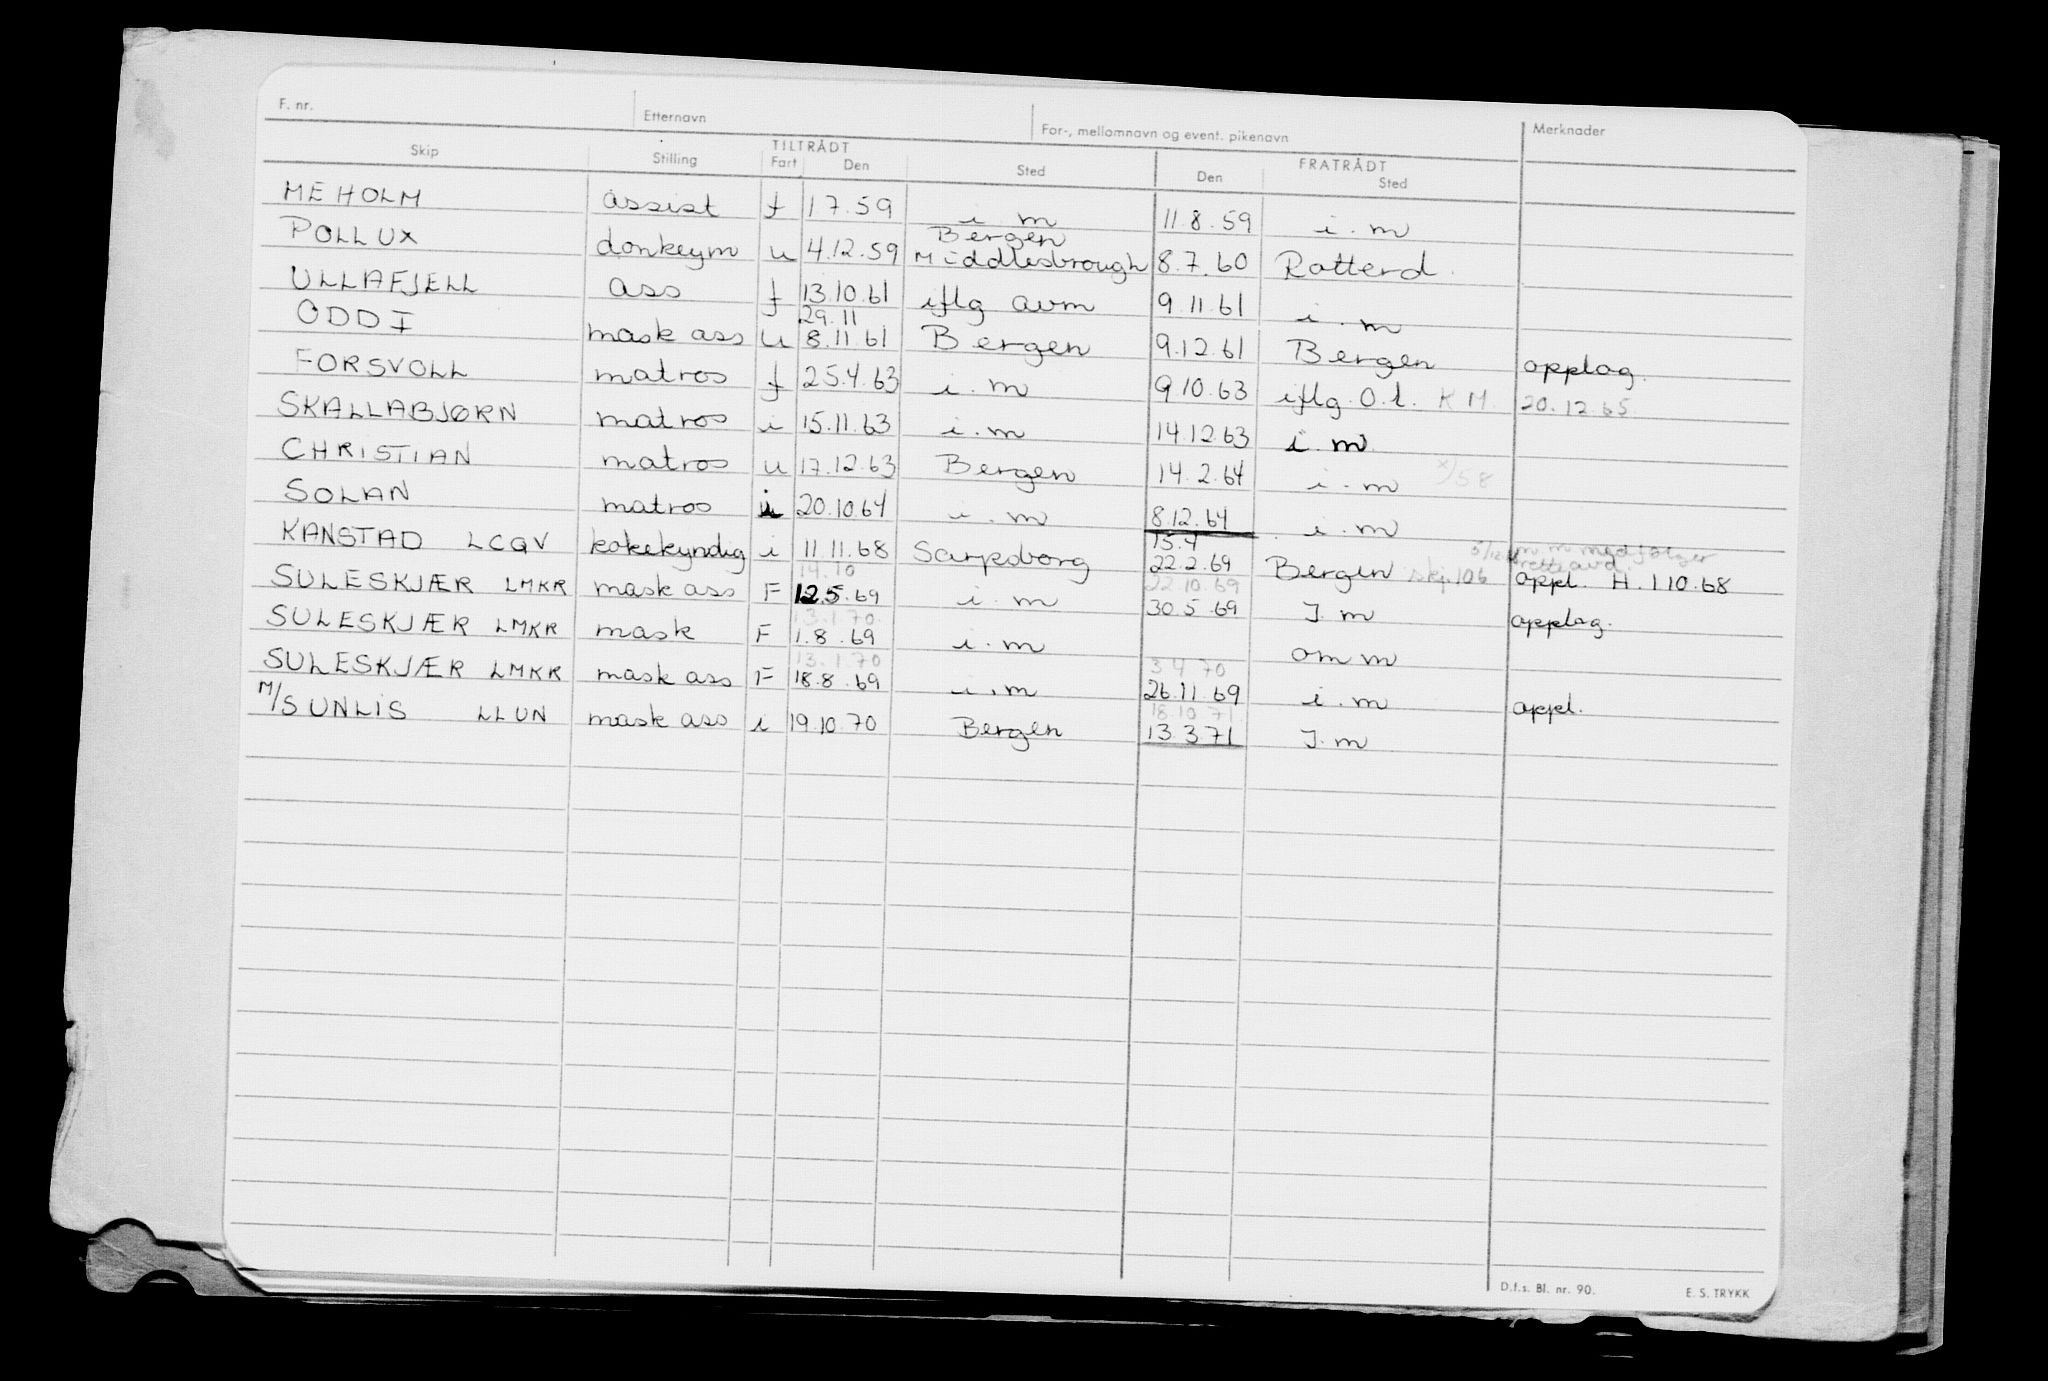 F. nr. Etternavn For-, mellomnavn og event. pikenavn Merknader
Skip Stilling TILTRÅDT Fart Den Sted FRATRÅDT Den Sted
MEHOLM assist f 1 7.59 i.m 11.8.59 i.m
POLLUX donkeym u 4.12.59 Bergen Middlesbrough 8.7.60 Rotterd.
ULLAFJELL ass f 13.10.61 iflg avm 9.11.61 i.m
29.11
ODD I mask ass u 8.11.61 Bergen 9.12.61 Bergen opplag.
FORSVOLL matros f 25.4.63 i.m 9.10.63 iflg. O.l. KM 20.12.65
SKALLABJØRN matros i 15.11.63 i.m 14.12.63 i.m
CHRISTIAN matros u 17.12.63 Bergen 14.2.64 i.m x/58
SOLAN matros i 20.10.64 i.m 8.12.64 i.m
15.4
KANSTAD LCQV kokekyndig i 11.11.68 Sarpsborg 22.2.69 Bergen oppl. H.1 10.68
14.10 22.10.69
SULESKJÆR LMKR mask ass F 12.5.69 i.m 30.5.69 I.m opplag.
13.1.70
SULESKJÆR LMKR mask F 1.8.69 i.m om m
13.1.70 3 4 70
SULESKJÆR LMKR mask ass F 18.8.69 i.m 26.11.69 i.m oppl.
18.10.71
M/S UNLIS LLUN mask ass i 19.10.70 Bergen 13.3.71 I.m
D.f.s. Bl. nr. 90. E. S. TRYKK